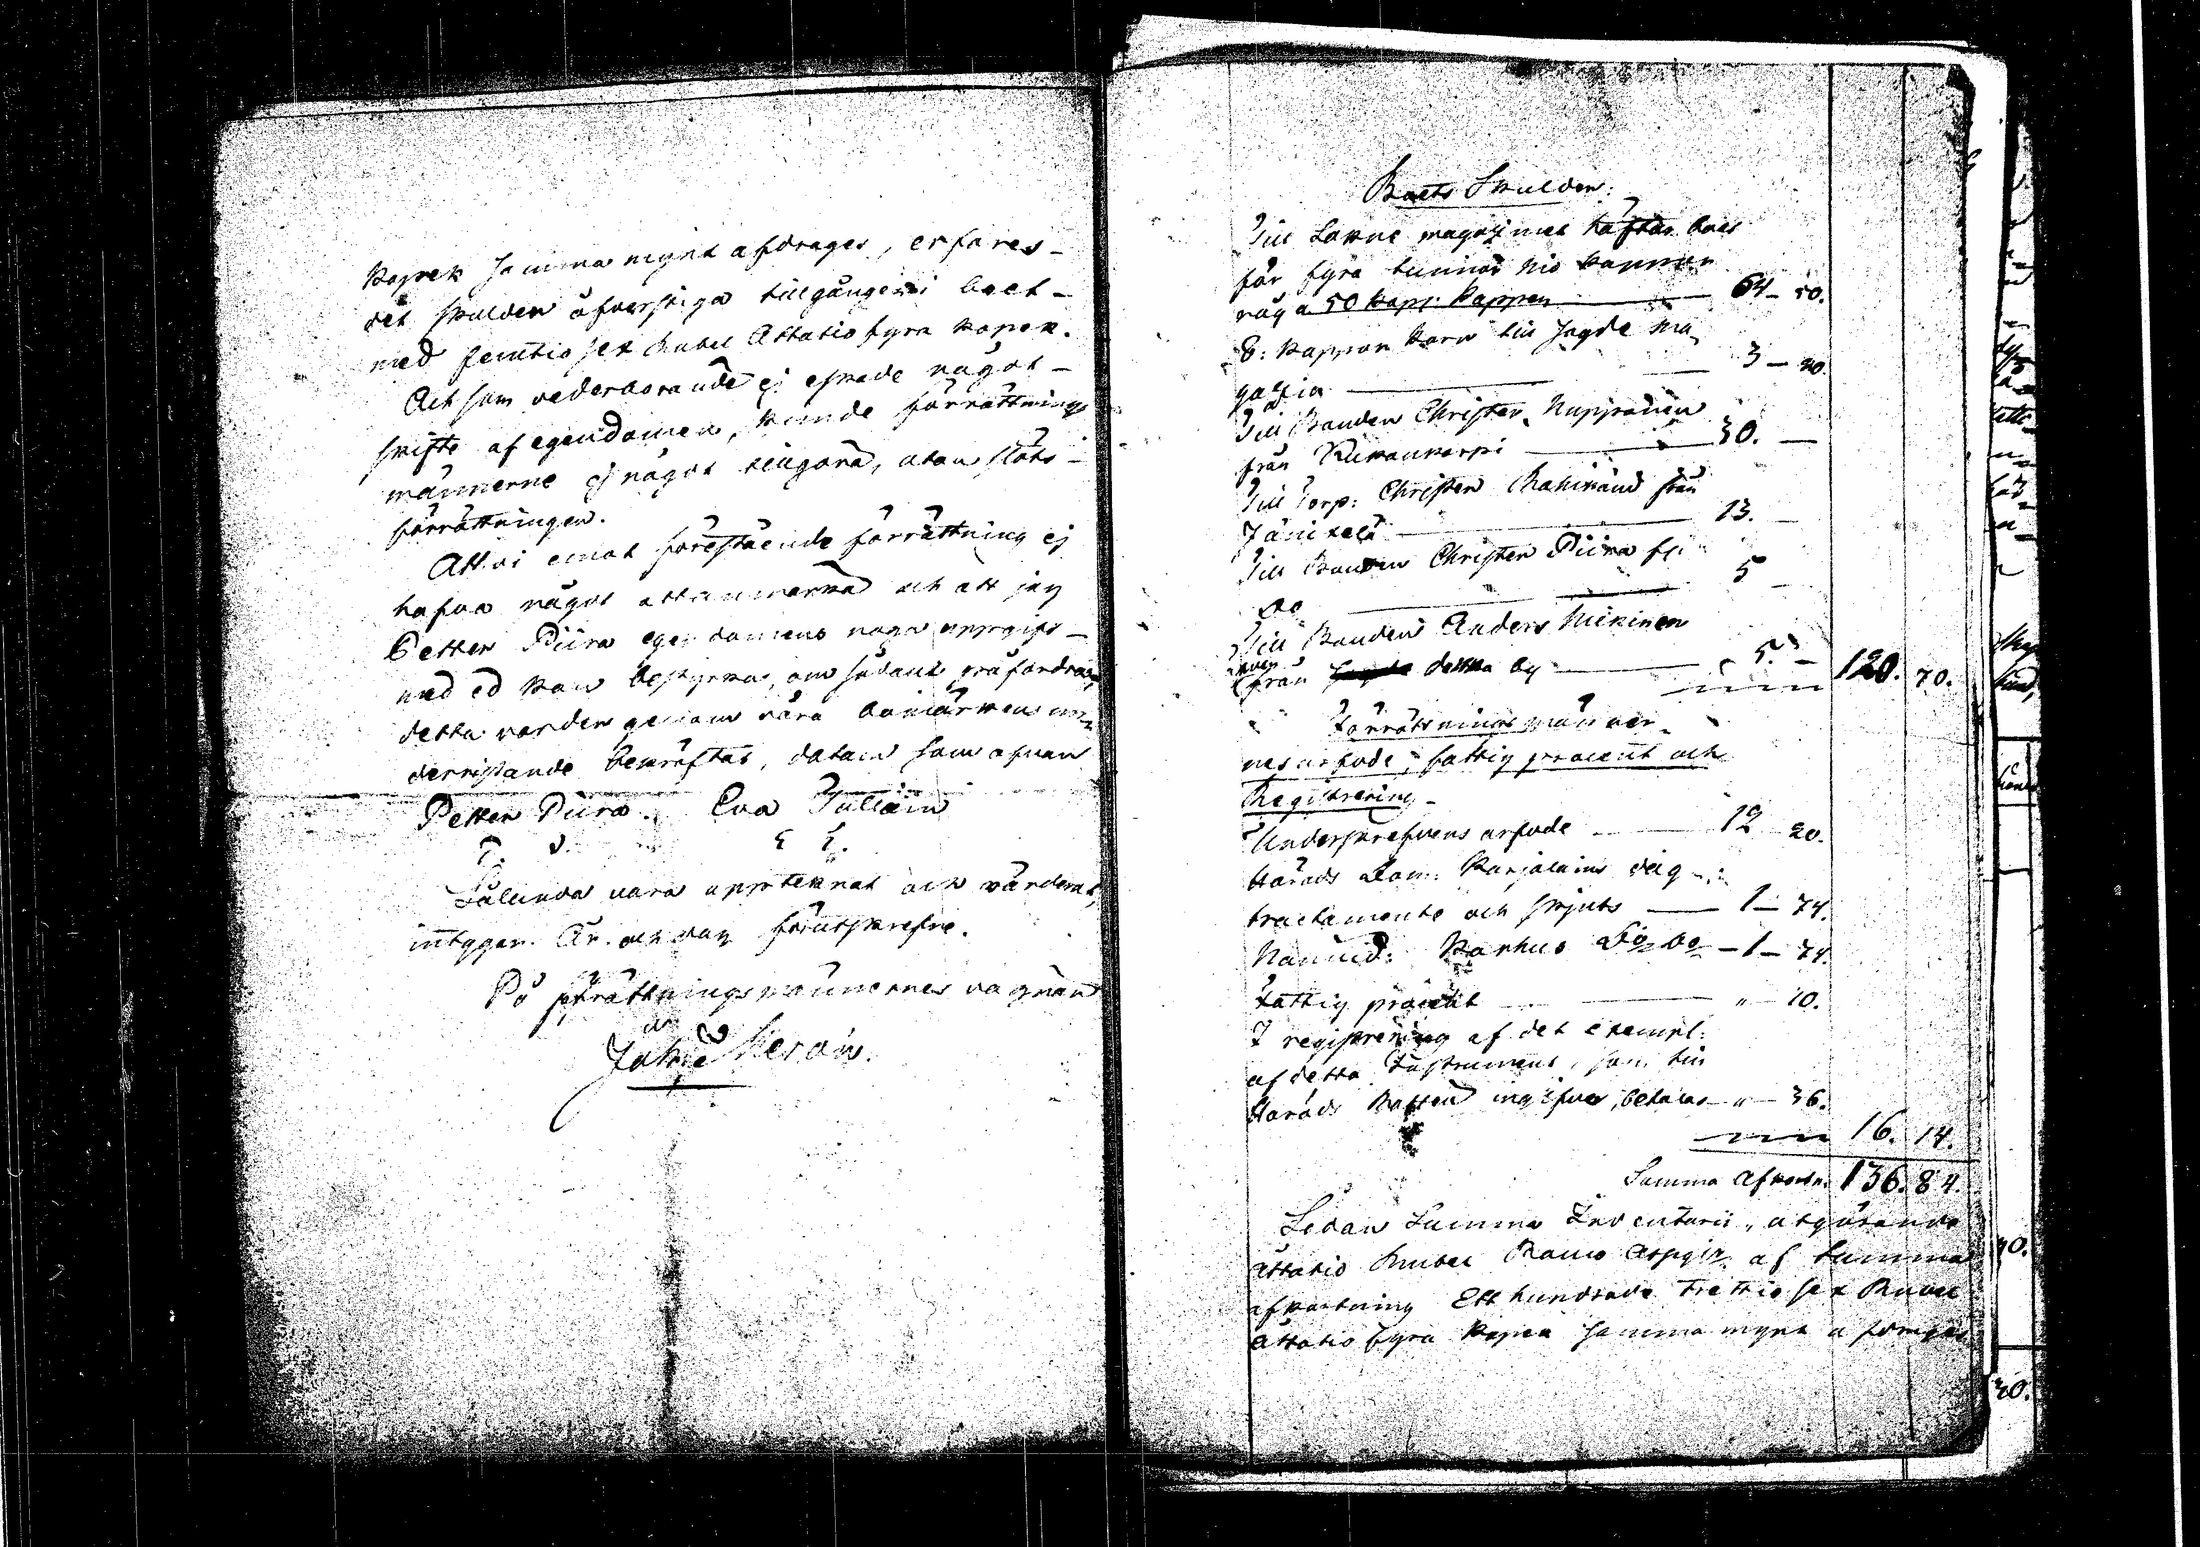 kopek samma mynt afdrages, erfares
det skulden öfverstiga tillgången i boet
med femtio sex Rubel Åttatio fyra kopek.
Och som vederborande ej eskade något
skifte af egendomen, kunde förrättnings
männerne ej något tillgöra, utan slöts
förrättningen.
Att vi emot förestående förrättning ej
hafva något att anmärka och att jag
Petter Piira egendomens noga uppgift
med ed kan bestyrka, om sådant
detta varder genom våra bomärkens un
derristande bekräftat, datum som ofvan
Petter Piira. Eva Tulliain
Sålunda vara upptecknat och värderat,
intygar. År och dag förutskrefne.
På förrättningsmännernes vägnar
Boets Skulder:
Till Sokne magazinet häftar boet
för fyra tunnor nio kappar
råg a 50 kop: kappen 64 - 50.
8: kappar korn till sagde ma
gazin 3 - 20.
Till Bonden Christer Nupponen
från 30. -
Till Torp: Christer från
13. -
Till Bonden Christer Piira fr:
Do 5 -
Till Bonden Anders Mikinen
från detta by 5. - 120. 70.
Förrättnings männer
nes arfode, fattig procent och
Registrering
Underskrefvens arfode 12 20.
Härads Dom: Karjalains dag
tractamente och skjuts 1 - 74.
Nämnd: Karhus Do Do - 1 - 74.
Fattig procent " 10.
I registrering af det exempl:
af detta Instrument, som till
Härads Rätten ingifves, betalas " 36.
16. 14.
Summa Afkortn. 136. 84.
Sedan Summa Inventarii, utgörande
åttatio Rubel Banco Assign. af Summa
afkortning Ett hundrade trettio sex Rubel
åttatio fyra kopek samma mynt afdrages